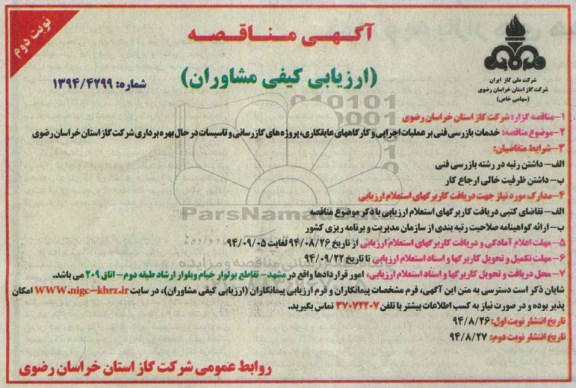 نوبت دوم
آگهی مناقصه
(ارزیابی کیفی مشاوران)
شماره: ۱۳۹۴/۴۲۹۹
شرکت ملی گاز ایران
شرکت گاز استان خراسان رضوی
(سهامی خاص)
۱-مناقصه گزار: شرکت گاز استان خراسان رضوی
۲-موضوع مناقصه: خدمات بازرسی فنی بر عملیات اجرایی و کارگاههای عایقکاری، پروژه های گازرسانی و تاسیسات در حال بهره برداری شرکت گاز استان خراسان رضوی
۳-شرایط متقاضیان:
الف-داشتن رتبه در رشته بازرسی فنی
ب-داشتن ظرفیت خالی ارجاع کار
۴-مدارک مورد نیاز جهت دریافت کاربرگهای استعلام ارزیابی
الف-تقاضای کتبی دریافت کاربرگهای استعلام ارزیابی با ذکر موضوع مناقصه
ب-ارائه گواهینامه صلاحیت رتبه بندی از سازمان مدیریت و برنامه ریزی کشور
۵-مهلت اعلام آمادگی و دریافت کاربرگهای استعلام ارزیابی از تاریخ ۹۴/۰۸/۲۶ لغایت ۹۴/۰۹/۰۵
۶-مهلت تکمیل و تحویل کاربرگها و اسناد استعلام ارزیابی تا تاریخ ۹۴/۰۹/۲۲
۷-محل دریافت و تحویل کاربرگها و اسناد استعلام ارزیابی، امور قراردادها واقع در مشهد-تقاطع بولوار خیام وبلوار ارشاد طبقه دوم-اتاق ۲۰۹ می باشد.
شایان ذکر است دسترسی به متن این آگهی، فرم مشخصات پیمانکاران و فرم ارزیابی پیمانکاران (ارزیابی کیفی مشاوران)، در سایت WWW.nigc-khrz.ir امکان
پذیر بوده و در صورت نیاز به کسب اطلاعات بیشتر با تلفن ۳۷۰۷۲۲۰۷ تماس بگیرید.
تاریخ انتشار نوبت اول: ۹۴/۸/۲۶
تاریخ انتشار نوبت دوم: ۹۴/۸/۲۷
روابط عمومی شرکت گاز استان خراسان رضوی